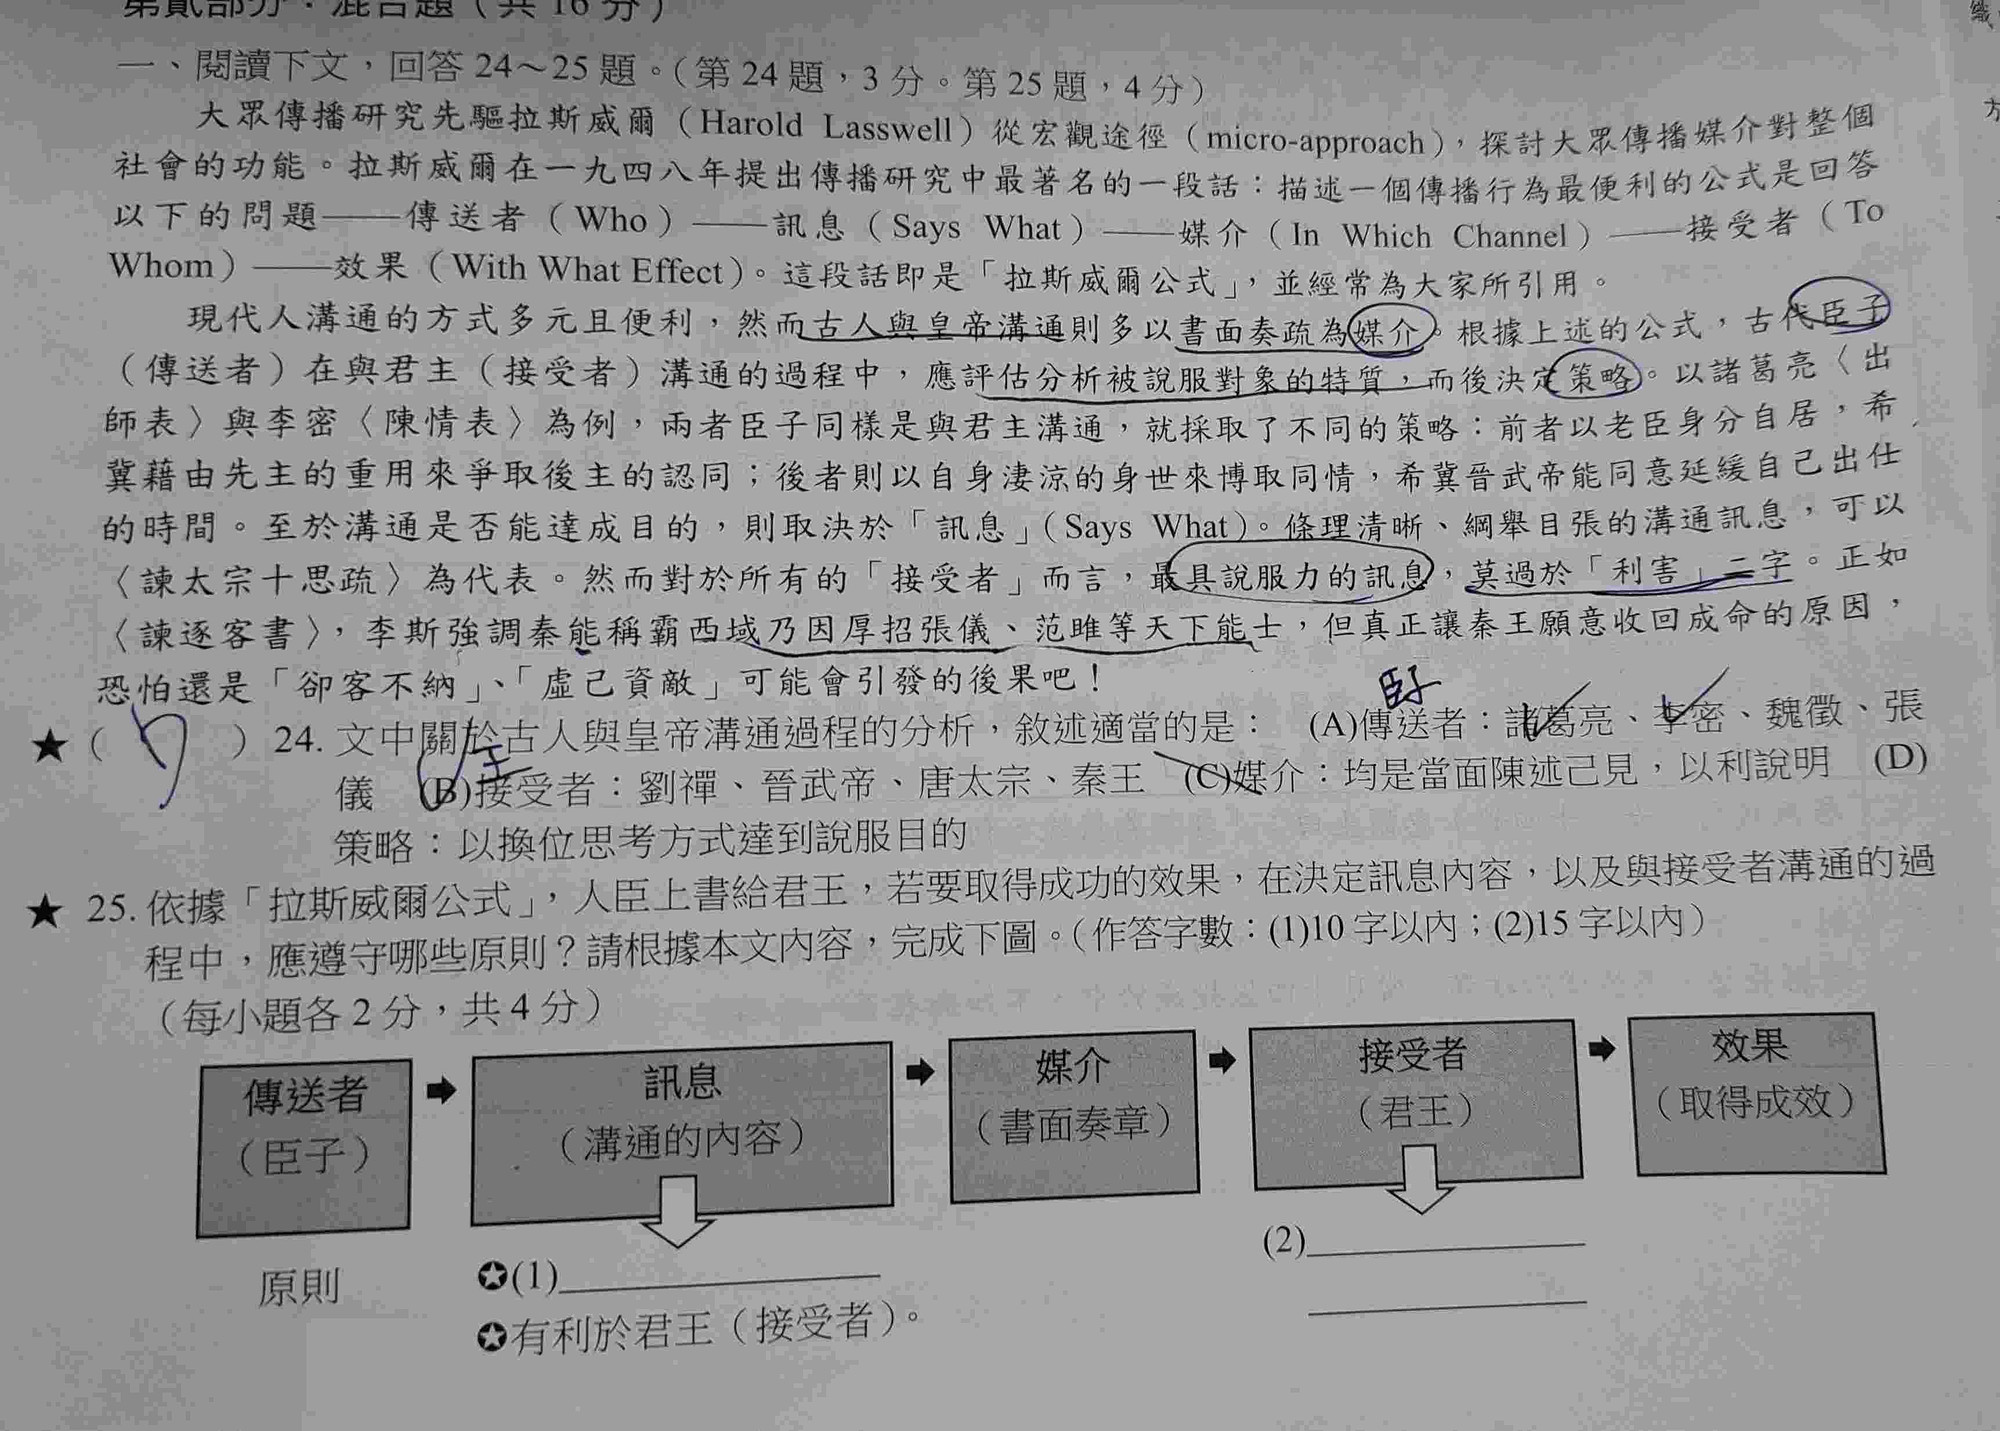 第貳部分：混合題（共 16 分）
一、閱讀下文，回答 24～25 題。（第 24 題，3 分。第 25 題，4 分）
大眾傳播研究先驅拉斯威爾（Harold Lasswell）從宏觀途徑（micro-approach），探討大眾傳播媒介對整個
社會的功能。拉斯威爾在一九四八年提出傳播研究中最著名的一段話：描述一個傳播行為最便利的公式是回答
以下的問題——傳送者（Who）——訊息（Says What）——媒介（In Which Channel）——接受者（To
Whom）——效果（With What Effect）。這段話即是「拉斯威爾公式」，並經常為大家所引用。
現代人溝通的方式多元且便利，然而古人與皇帝溝通則多以書面奏疏為媒介。根據上述的公式，古代臣子
（傳送者）在與君主（接受者）溝通的過程中，應評估分析被說服對象的特質，而後決定策略。以諸葛亮〈出
師表〉與李密〈陳情表〉為例，兩者臣子同樣是與君主溝通，就採取了不同的策略：前者以老臣身分自居，希
冀藉由先主的重用來爭取後主的認同；後者則以自身淒涼的身世來博取同情，希冀晉武帝能同意延緩自己出仕
的時間。至於溝通是否能達成目的，則取決於「訊息」（Says What）。條理清晰、綱舉目張的溝通訊息，可以
〈諫太宗十思疏〉為代表。然而對於所有的「接受者」而言，最具說服力的訊息，莫過於「利害」二字。正如
〈諫逐客書〉，李斯強調秦能稱霸西域乃因厚招張儀、范雎等天下能士，但真正讓秦王願意收回成命的原因，
恐怕還是「卻客不納」、「虛己資敵」可能會引發的後果吧！
臣子
★（　　）24. 文中關於古人與皇帝溝通過程的分析，敘述適當的是：　(A)傳送者：諸葛亮、李密、魏徵、張
儀　(B)接受者：劉禪、晉武帝、唐太宗、秦王　(C)媒介：均是當面陳述己見，以利說明　(D)
策略：以換位思考方式達到說服目的
★ 25. 依據「拉斯威爾公式」，人臣上書給君王，若要取得成功的效果，在決定訊息內容，以及與接受者溝通的過
程中，應遵守哪些原則？請根據本文內容，完成下圖。（作答字數：(1)10 字以內；(2)15 字以內）
（每小題各 2 分，共 4 分）
傳送者
（臣子）
訊息
（溝通的內容）
媒介
（書面奏章）
接受者
（君王）
效果
（取得成效）
原則
✪(1)
✪有利於君王（接受者）。
(2)